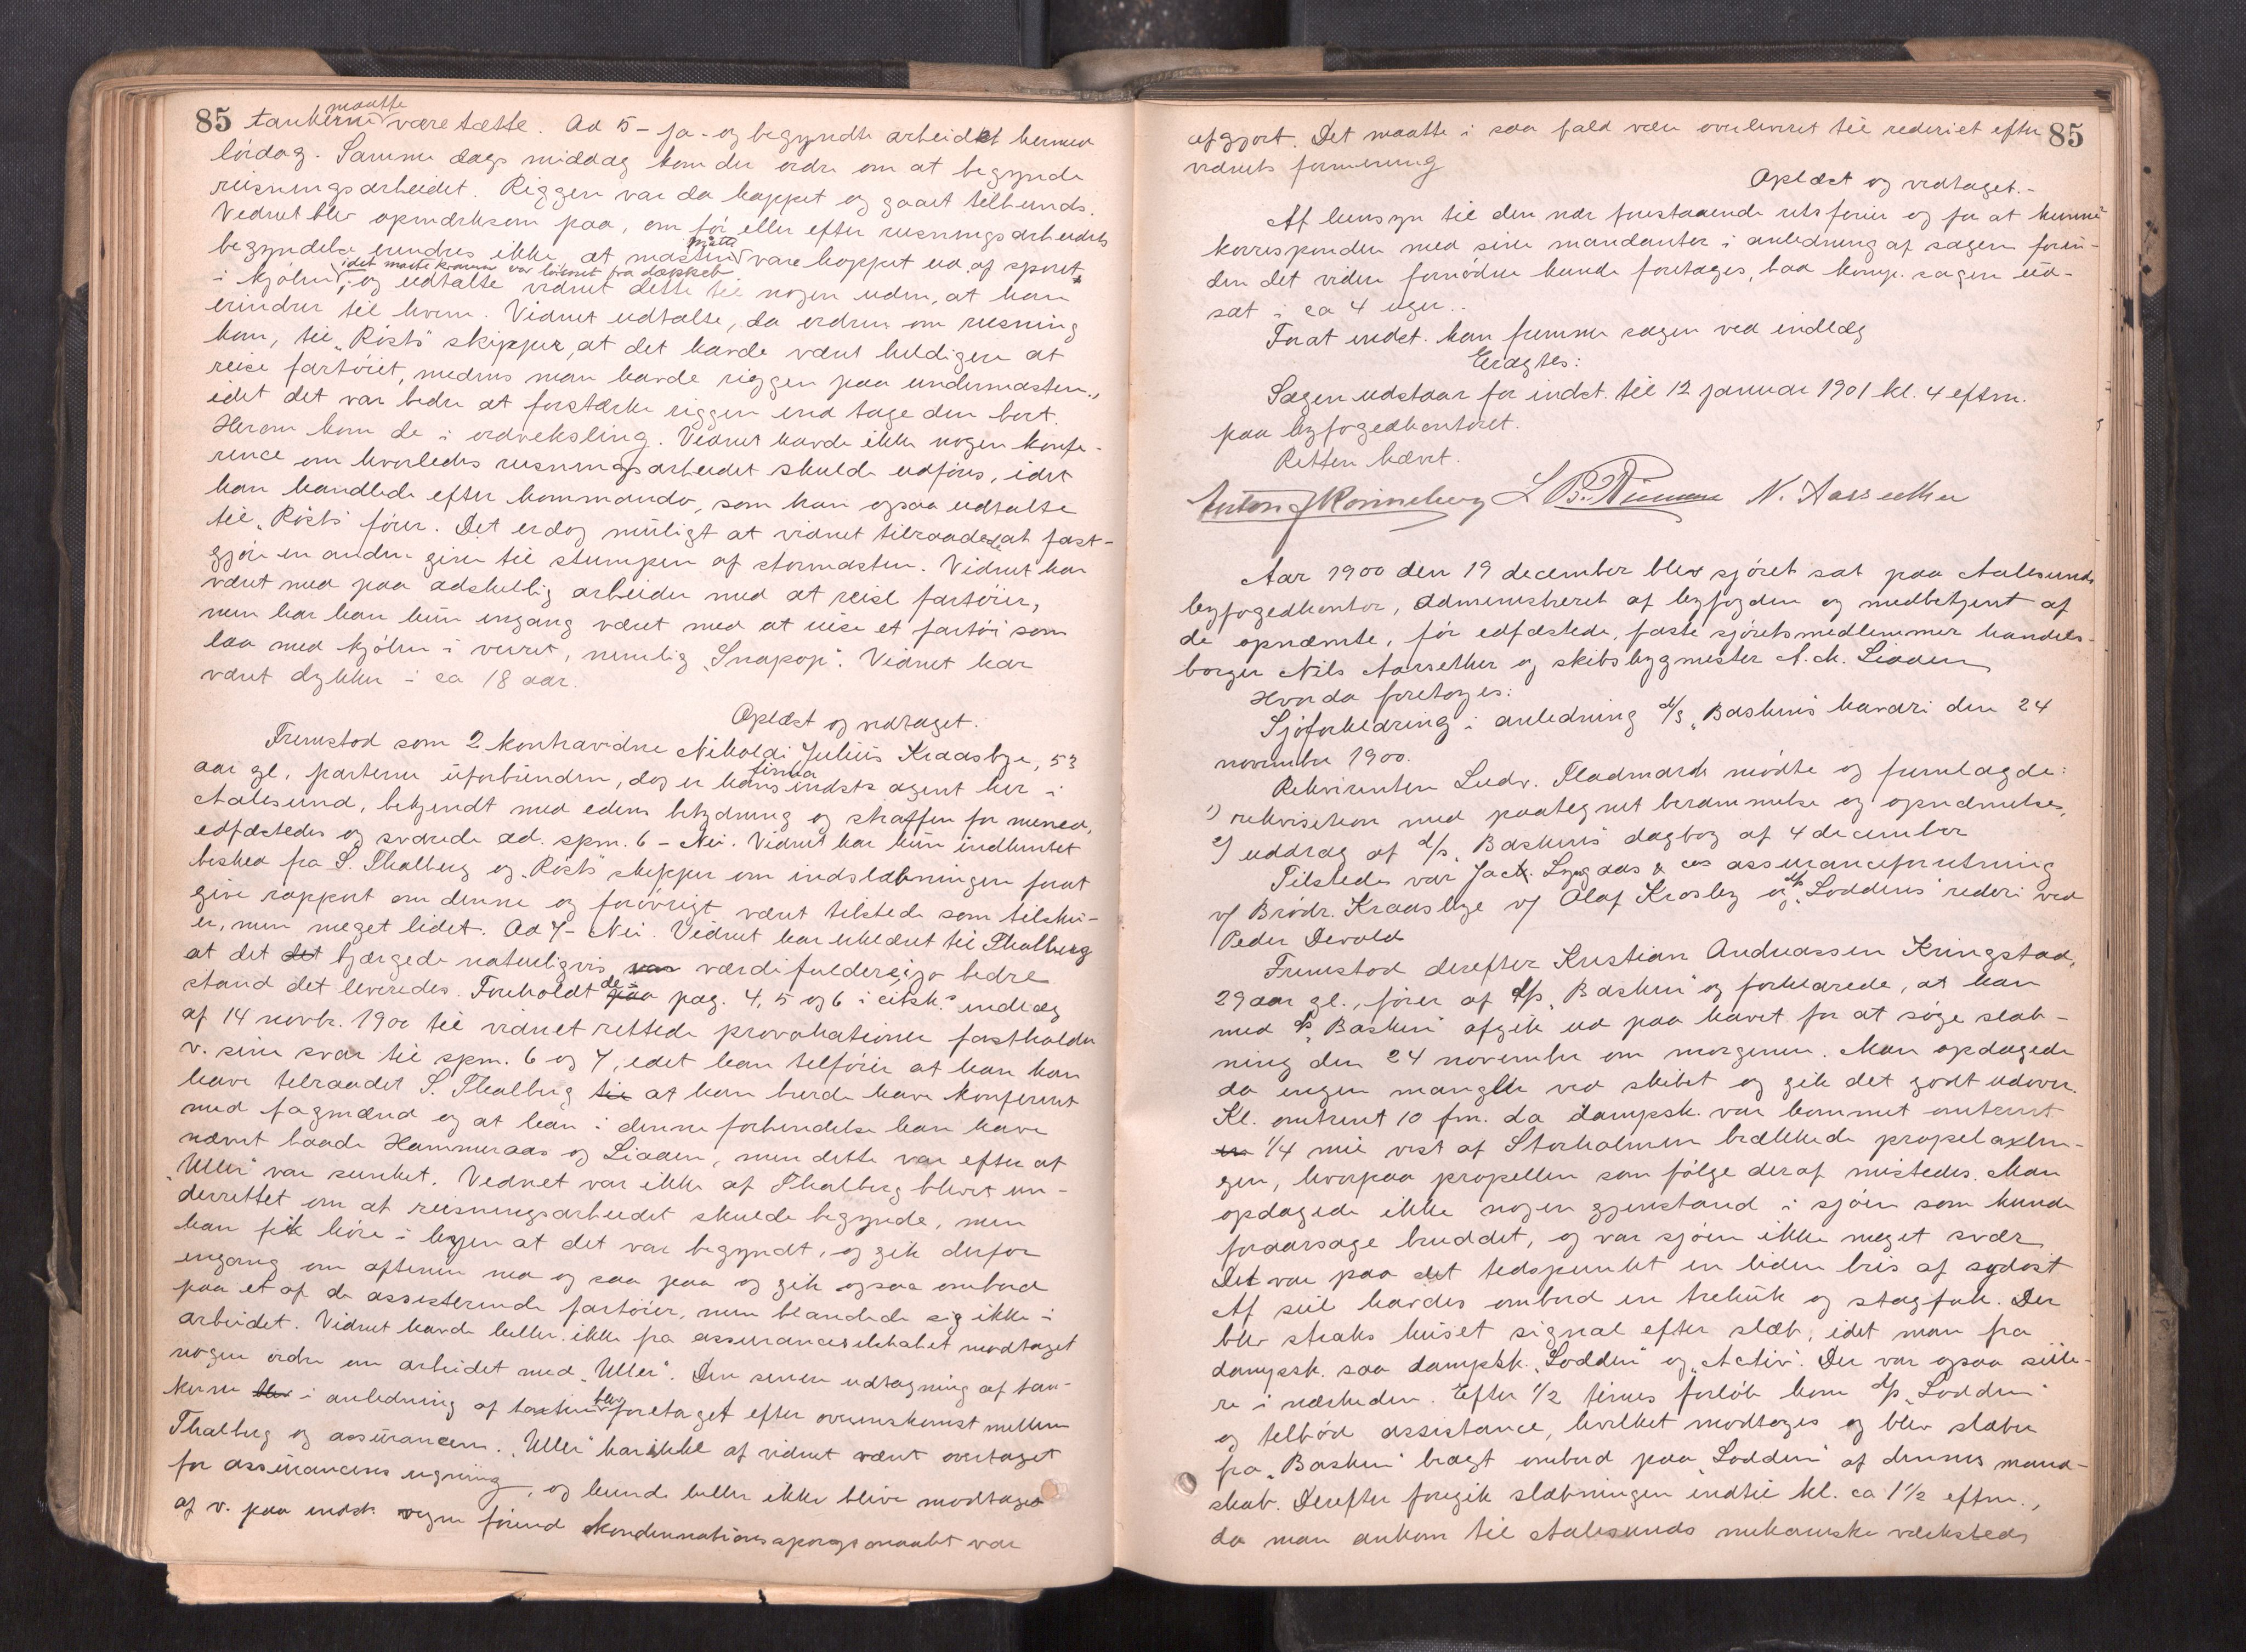 85 tankerne maatte være tætte. Ad 5 - Ja - og begyndte arbeidet hermed
lördag. Samme dags middag kom der ordre om at begynde
reisningsarbeidet. Riggen var da kappet og gaaet tilbunds.
Vidnet blev opmerksom paa, om för eller efter reisningsarbeidets
begyndelse erindres ikke, at masten maatte være hoppet ud af sporet
i kjölen, idet mastekraven var löicnet fra dækket, og udtalte vidnet dette til nogen uden, at han
erindrer til hvem. Vidnet udtalte, da ordren om reisning
kom, til "Rösts" skipper, at det havde været heldigere at
reise fartöiet, medens man havde riggen paa undermasten,
idet det var bedre at forstærke riggen end tage den bort.
Herom kom de i ordveksling. Vidnet havde ikke nogen konfe-
rence om hvorledes reisningsarbeidet skulde udföres, idet
han handlede efter kommando, som han ogsaa udtalte
til "Rösts" förer. Det er dog muligt at vidnet tilraadede at fast-
gjöre en anden giren til stumpen af stormasten. Vidnet har
været med paa adskillig arbeider med at reise fartöier,
men har han kun engang været med at reise et fartöi som
laa med kjölen i veiret, nemlig "Snapop". Vidnet har
været dykker i ca 18 aar.
Oplæst og vedtaget.
Fremstod som 2 kontravidne Nikolai Julius Kraasbye, 53
aar gl, parterne uforbunden, dog er hans firma indst. agent her i
Aalesund, bekjendt med edens betydning og straffen for mened,
edfæstedes og svarede ad. spm. 6 - Nei. Vidnet har kun indhentet
besked fra S. Thalberg og "Rösts" skipper om indslæbningen forat
give rapport om denne og forövrigt været tilstede som tilsku-
er, men meget lidet. Ad 7 - Nei. Vidnet har erklæret til Thalberg
at det det bjærgede naturligvis var værdifuldere, jo bedre
stand det leveredes. Foreholdt de paa pag. 4, 5 og 6 i citsk.s indlæg
af 14 novbr. 1900 til vidnet rettede provokationer fastholder
v. sine svar til spm. 6 og 7, idet han tilföier at han kan
have tilraadet S. Thalberg til at han burde have konfereret
med fagmænd og at han i denne forbindelse kan have
nævnt baade Hammeraas og Liaaen, men dette var efter at
"Uller" var sunket. Vidnet var ikke af Thalberg blevet un-
derrettet om at reisningsarbeidet skulde begynde, men
han fik höre i byen at det var begyndt, og gik derfor
engang om aftenen ned og saa paa og gik ogsaa ombord
paa et af de assisterende fartöier, men blandede sig ikke i
arbeidet. Vidnet havde heller ikke fra assuranceselskabet modtaget
nogen ordre om arbeidet med "Uller". Den senere udtagning af tan-
kerne blev i anledning af taxten blev foretaget efter overenskomst mellem
Thalberg og assurancen. "Uller" har ikke af vidnet været overtaget
for assurancens regning, og kunde heller ikke blive modtaget
af v. paa indst. vegne forend kondemnationsspörgsmaalet var
afgjort. Det maatte i saa fald være overleveret til rederiet efter 85
vidnets formening
Oplæst og vedtaget.-
Af hensyn til den nær forestaaende retsferier og for at kunne
korrespondere med sine mandanter i anledning af sagen forin-
den det videre fornödne kunde foretages, bad komp. sagen ud-
sat i ca 4 uger..
Forat indst. kan fremme sagen ved indlæg
Eragtes:
Sagen udstaar for indst. til 12 januar 1901 kl. 4 eftm.
paa byfogedkontoret.
Retten hævet.
Anton J Rönneberg L B. N. Aarsether
Aar 1900 den 19 december blev sjöret sat paa Aalesunds
byfogedkontor, administreret af byfogden og medbetjent af
de opnævnte, för edfæstede, faste sjöretsmedlemmer handels-
borger Nils Aarsether og skibsbygmester N. M. Liaaen
Hvorda foretoges:
Sjöforklaring i anledning d/s "Baskens" havari den 24
november 1900.
Rekvirenten Ludv. Fladmark mödte og fremlagde:
1) rekvisition med paategnet berammelse og opnævnelse,
2) uddrag af d/s "Baskens" dagbog af 4 december
Tilstede var Jack. Lyngaas & Co assuranceforretning
v/ Brödr. Kraasbye v/ Olaf Krosby og d/s "Loddens" rederi ved
Peder Devold
Fremstod derefter Kristian Andreassen Kringstad,
29 aar gl., förer af d/s "Basken" og forklarede, at han
med d/s "Basken" afgik ud paa havet for at söge slæb-
ning den 24 november om morgenen. Man opdagede
da ingen mangler ved skibet og gik det godt udover.
Kl. omtrent 10 fm. da dampsk. var kommet omtrent
en 1/4 mil vest af Storholmen brækkede propelaxlin-
gen, hvorpaa propellen som fölge deraf mistedes. Man
opdagede ikke nogen gjenstand i sjöen som kunde
foraarsage bruddet, og var sjöen ikke meget svær
Det var paa det tidspunkt en liden bris af sydost
Af seil havdes ombord en trekük og stagfok. Der
blev straks heiset signal efter slæb, idet man fra
dampsk. saa dampsk. "Lodden" og "Activ". Der var ogsaa seile-
re i nærheden. Efter 1/2 times forlöb kom d/s "Lodden"
og tilböd assistance, hvilket modtoges og blev slæber
fra "Basken" bragt ombord paa "Lodden" af dennes mand-
skab. Derefter foregik slæbningen indtil kl. ca 1 1/2 eftm.,
da man ankom til Aalesunds mekaniske værksted